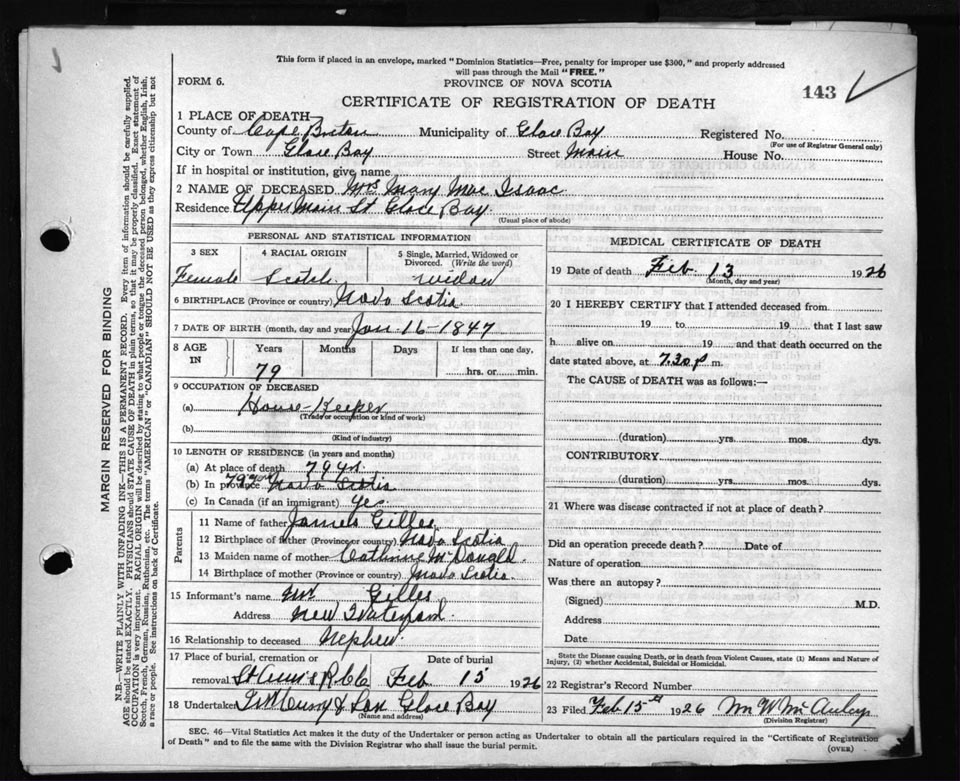 This form if placed in an envelope, marked "Dominion Statistics—Free, penalty for improper use $300," and properly addressed
will pass through the Mail "FREE."
FORM 6.
PROVINCE OF NOVA SCOTIA
143
CERTIFICATE OF REGISTRATION OF DEATH
1 PLACE OF DEATH
County of Cape Breton Municipality of Glace Bay Registered No.
(For use of Registrar General only)
City or Town Glace Bay Street Main House No.
If in hospital or institution, give name
2 NAME OF DECEASED Mrs Mary Mac Isaac
Residence Upper Main St Glace Bay
(Usual place of abode)
PERSONAL AND STATISTICAL INFORMATION
3 SEX 4 RACIAL ORIGIN 5 Single, Married, Widowed or Divorced. (Write the word)
Female Scotch widow
6 BIRTHPLACE (Province or country) Nova Scotia
7 DATE OF BIRTH (month, day and year) Jan 16-1847
8 AGE IN Years Months Days If less than one day,
79 hrs. or min.
9 OCCUPATION OF DECEASED
(a) House-Keeper
(Trade or occupation or kind of work)
(b)
(Kind of industry)
10 LENGTH OF RESIDENCE (in years and months)
(a) At place of death 79 yr.
(b) In province 79 years Nova Scotia
(c) In Canada (if an immigrant) yes
Parents
11 Name of father James Gilles
12 Birthplace of father (Province or country) Nova Scotia
13 Maiden name of mother Cathrine McDonald
14 Birthplace of mother (Province or country) Nova Scotia.
15 Informant's name Gilles
Address New Waterford.
16 Relationship to deceased Nephew.
17 Place of burial, cremation or removal Date of burial
Feb 15 1926
18 Undertaker & Son Glace Bay
(Name and address)
MEDICAL CERTIFICATE OF DEATH
19 Date of death Feb. 13 1926
(Month, day and year)
20 I HEREBY CERTIFY that I attended deceased from
19 to 19 that I last saw
h alive on 19 and that death occurred on the
date stated above, at 7.30 p m.
The CAUSE of DEATH was as follows:—
(duration) yrs. mos. dys.
CONTRIBUTORY
(duration) yrs. mos. dys.
21 Where was disease contracted if not at place of death?
Did an operation precede death? Date of
Nature of operation
Was there an autopsy?
(Signed) M.D.
Address
Date
State the Disease causing Death, or in death from Violent Causes, state (1) Means and Nature of
Injury, (2) whether Accidental, Suicidal or Homicidal.
22 Registrar's Record Number
23 Filed Feb 15th 1926
(Division Registrar)
SEC. 46—Vital Statistics Act makes it the duty of the Undertaker or person acting as Undertaker to obtain all the particulars required in the "Certificate of Registration
of Death" and to file the same with the Division Registrar who shall issue the burial permit. (OVER)
MARGIN RESERVED FOR BINDING
N.B.—WRITE PLAINLY WITH UNFADING INK—THIS IS A PERMANENT RECORD. Every item of information should be carefully supplied.
AGE should be stated EXACTLY. PHYSICIANS should STATE CAUSE OF DEATH in plain terms, so that it may be properly classified. Exact statement of
OCCUPATION is very important. RACIAL ORIGIN will be described by stating to what people or tongue the deceased person belonged, whether English, Irish,
Scotch, French, German, Russian, Ruthenian, etc. The terms "AMERICAN" or "CANADIAN" SHOULD NOT BE USED as they express citizenship but not
a race or people. See instructions on back of Certificate.